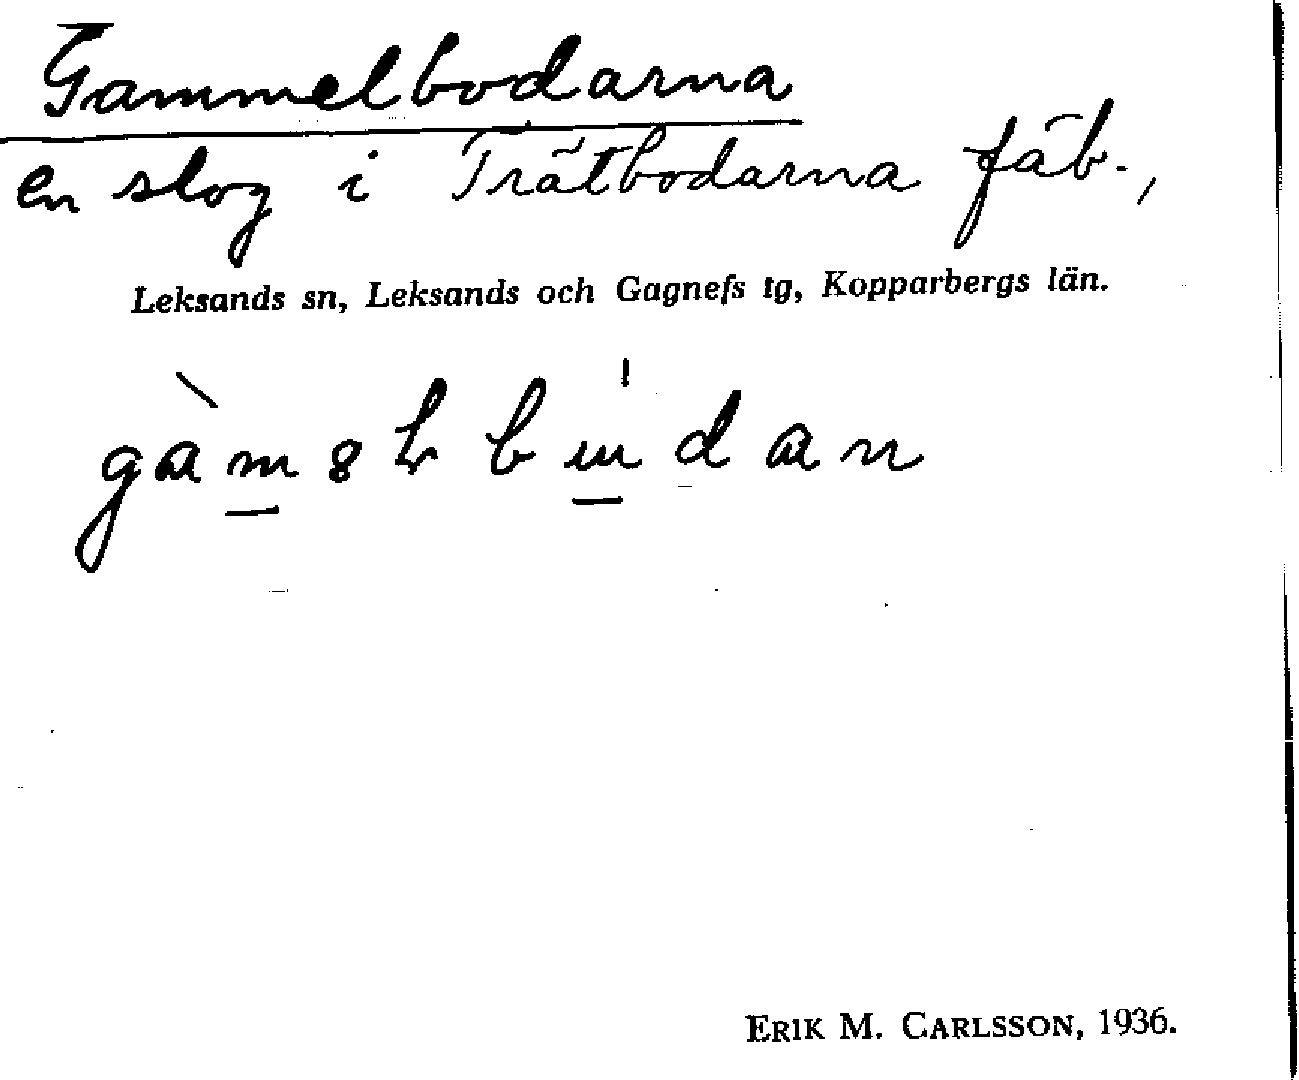 Gammelbodarna
en slog i Trätbodarna fäb.,
Leksands sn, Leksands och Gagnefs tg, Kopparbergs län.
ERIK M. CARLSSON, 1936.